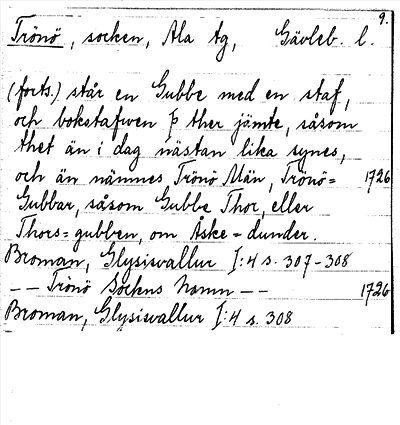 9.
Trönö, socken, Ala tg, Gävleb. l.
(forts.) står en Gubbe med en staf,
och bokstafwen þ ther jämte, såsom
thet än i dag nästan lika synes,
och än nämnes Trönö Män, Trönö= 1726
Gubbar, såsom Gubbe Thor, eller
Thors=gubben, om Åske=dunder.
Broman, Glysiswallur I:4 s. 307-308
-- Trönö Sockns Namn -- 1726
Broman, Glysiswallur I:4 s. 308